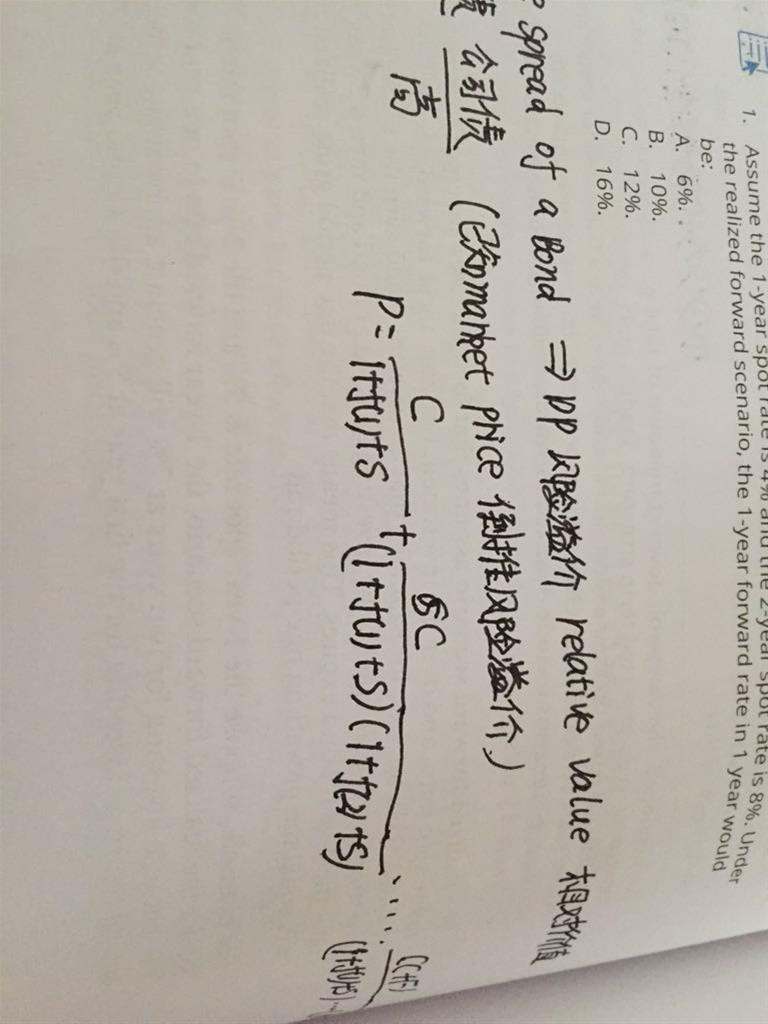 1. Assume the 1-year spot rate is 4% and the 2-year spot rate is 8%. Under
the realized forward scenario, the 1-year forward rate in 1 year would
be:
A. 6%.
B. 10%.
C. 12%.
D. 16%.
spread of a Bond ⇒ DP 风险溢价 relative value 相对价值
债 公司债 (已知market price 倒推风险溢价)
高
P = C/(1+f(1)+S) + C/((1+f(1)+S)(1+f(2)+S)) ..... (C+F)/((1+f(1)+S)...